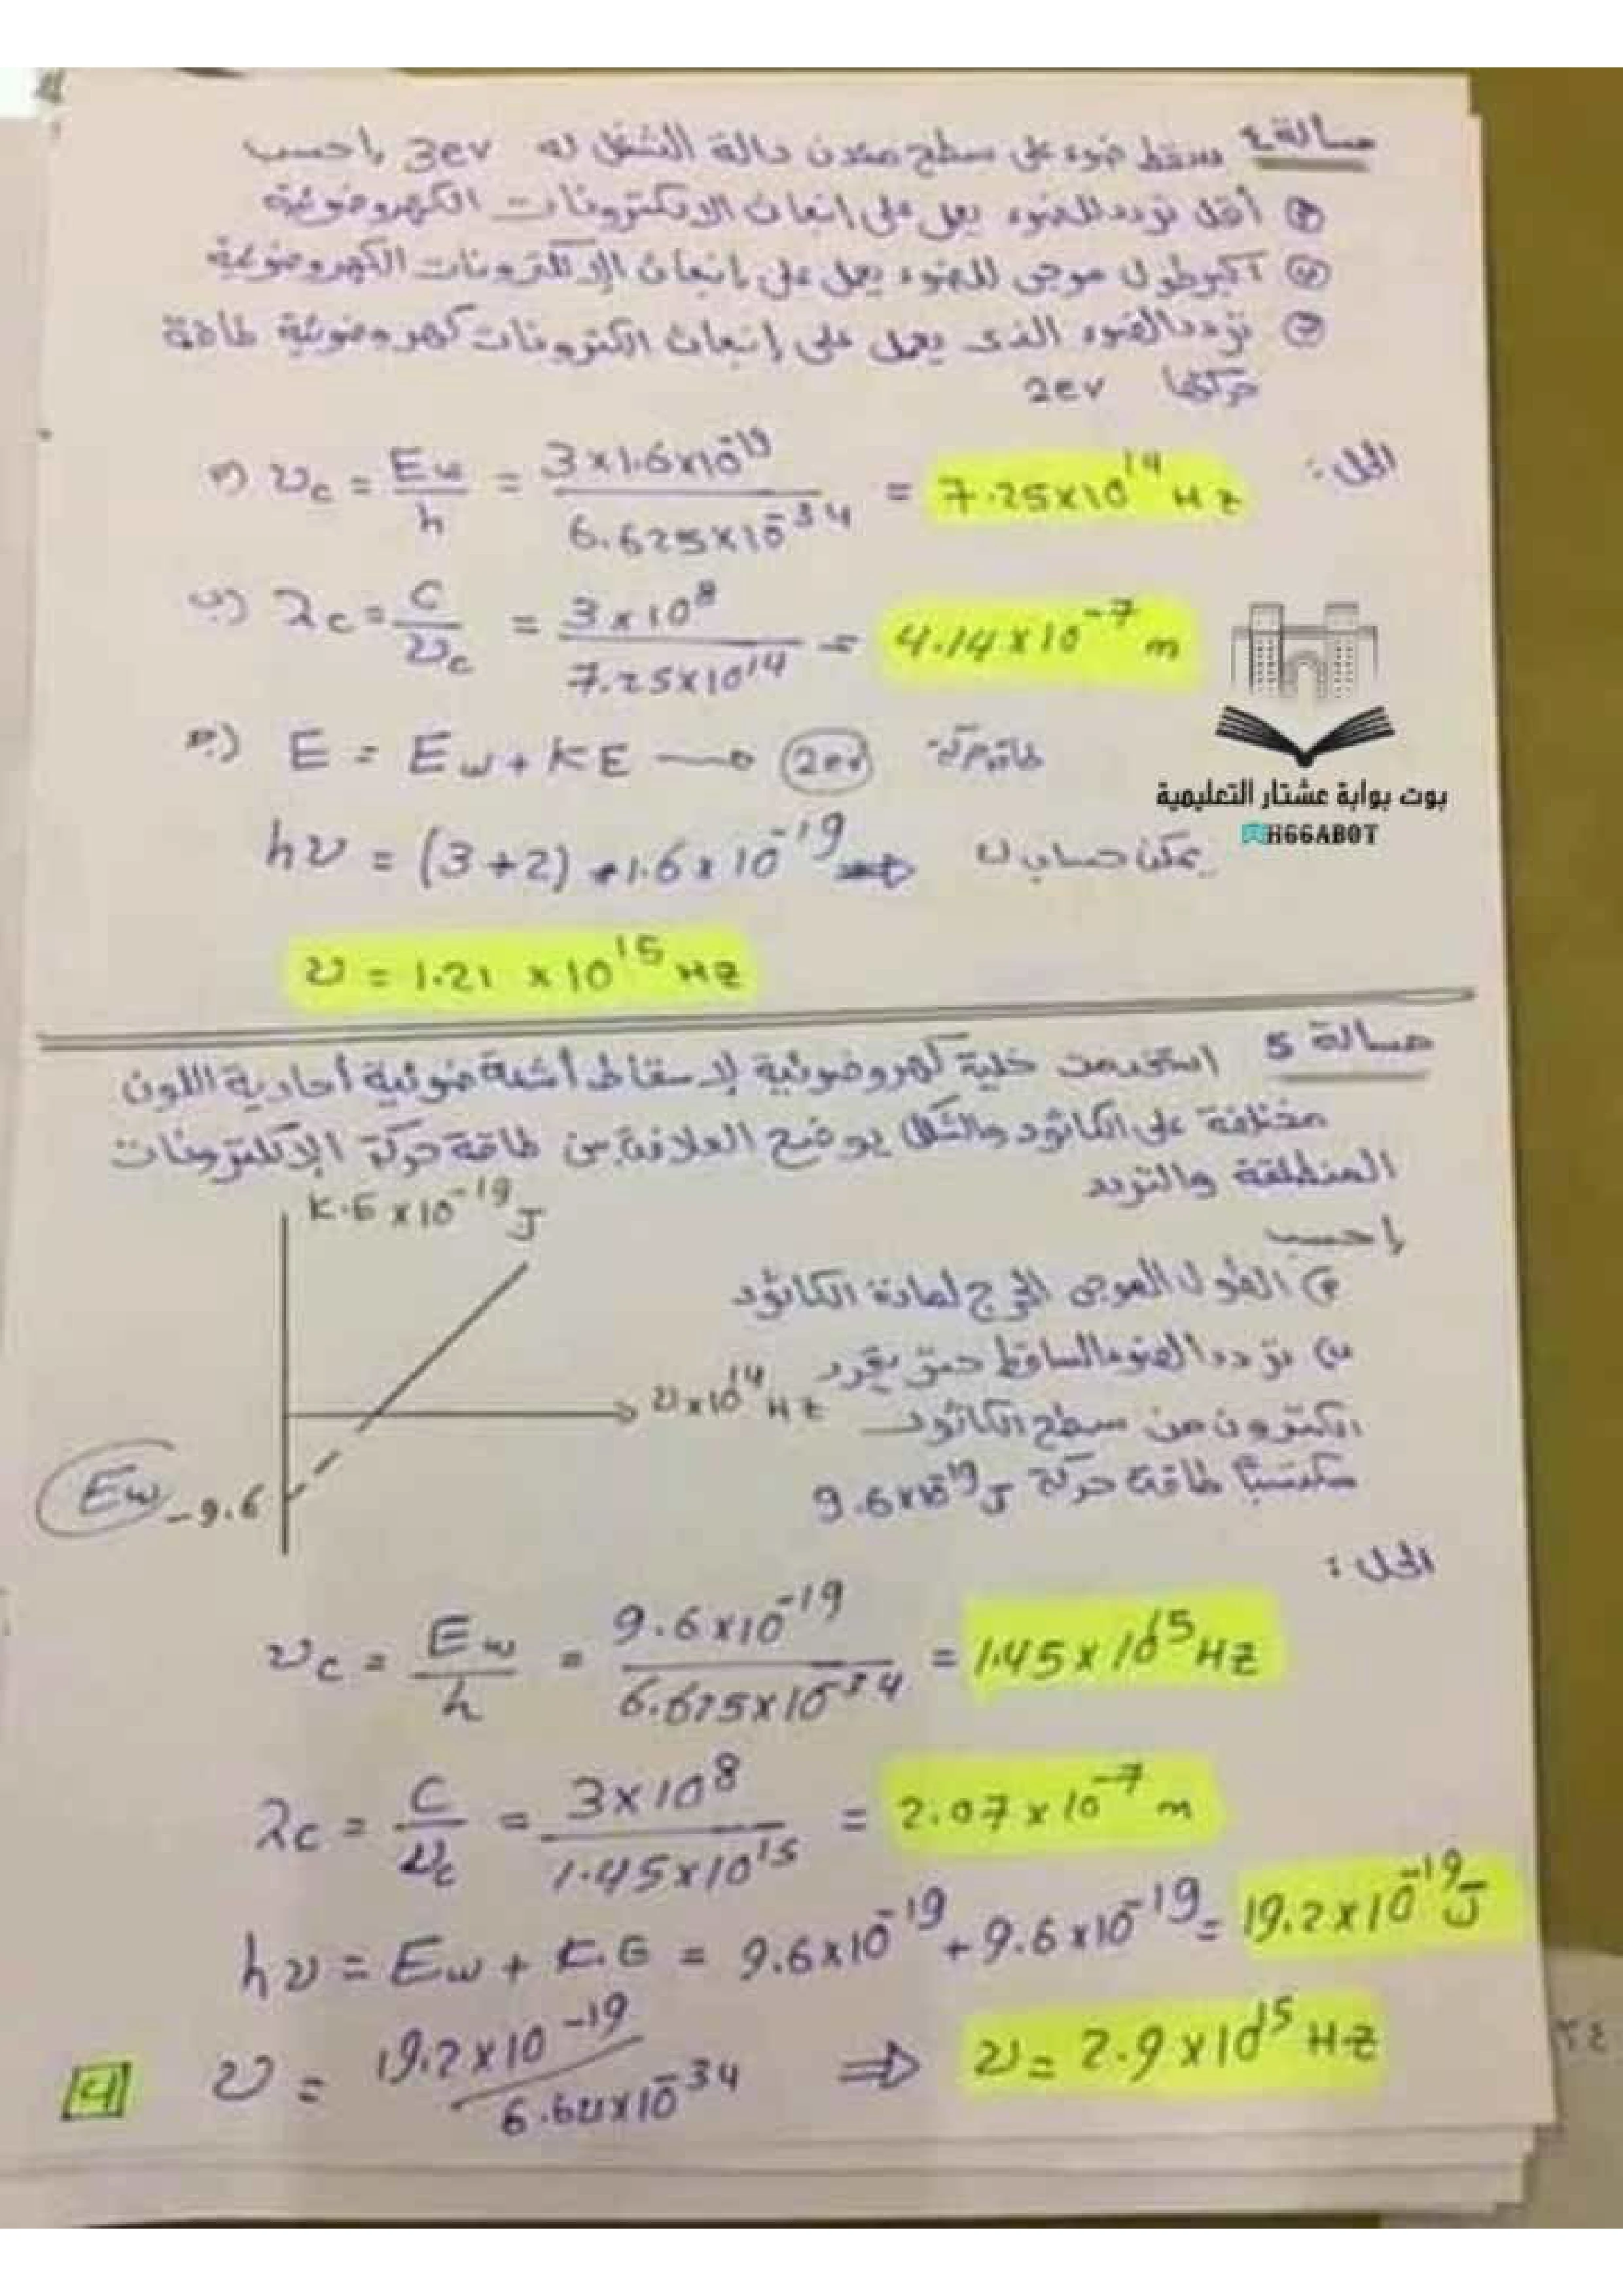 مسالة ٤ سقط ضوء على سطح معدن دالة الشغل له 3ev احسب
أقل تردد للضوء يعمل على انبعاث الالكترونات الكهروضوئية
أكبر طول موجى للضوء يعمل على إنبعاث الإلكترونات الكهروضوئية
تردد الضوء الذى يعمل على إنبعاث الكترونات كهروضوئية طاقة
حركتها 2ev
الحل :
υc = Ew / h = 3×1.6×10^-19 / 6.625×10^-34 = 7.25×10^14 Hz
ب) λc = C / υc = 3×10^8 / 7.25×10^14 = 4.14×10^-7 m
بوت بوابة عشتار التعليمية
H66ABOT
ج) E = Ew + KE → 2ev طاقة حركة
hυ = (3+2) * 1.6×10^-19 ⇒ يمكن حساب υ
υ = 1.21 ×10^15 Hz
مسالة 5 استخدمت خلية كهروضوئية لإسقاط أشعة ضوئية أحادية اللون
مختلفة على الكاثود والشكل يوضح العلاقة بين طاقة حركة الإلكترونات
المنطلقة والتردد
K.E ×10^-19 J
إحسب
الطول الموجى الحرج لمادة الكاثود
ب) تردد الضوء الساقط حتى يتحرر
υ×10^14 Hz
الكترون من سطح الكاثود
مكتسبًا طاقة حركة 9.6×10^-19 J
Ew -9.6
الحل :
υc = Ew / h = 9.6×10^-19 / 6.625×10^-34 = 1.45×10^15 Hz
λc = C / υc = 3×10^8 / 1.45×10^15 = 2.07×10^-7 m
hυ = Ew + K.E = 9.6×10^-19 + 9.6×10^-19 = 19.2×10^-19 J
υ = 19.2×10^-19 / 6.64×10^-34 ⇒ υ = 2.9×10^15 Hz
4
٢٤